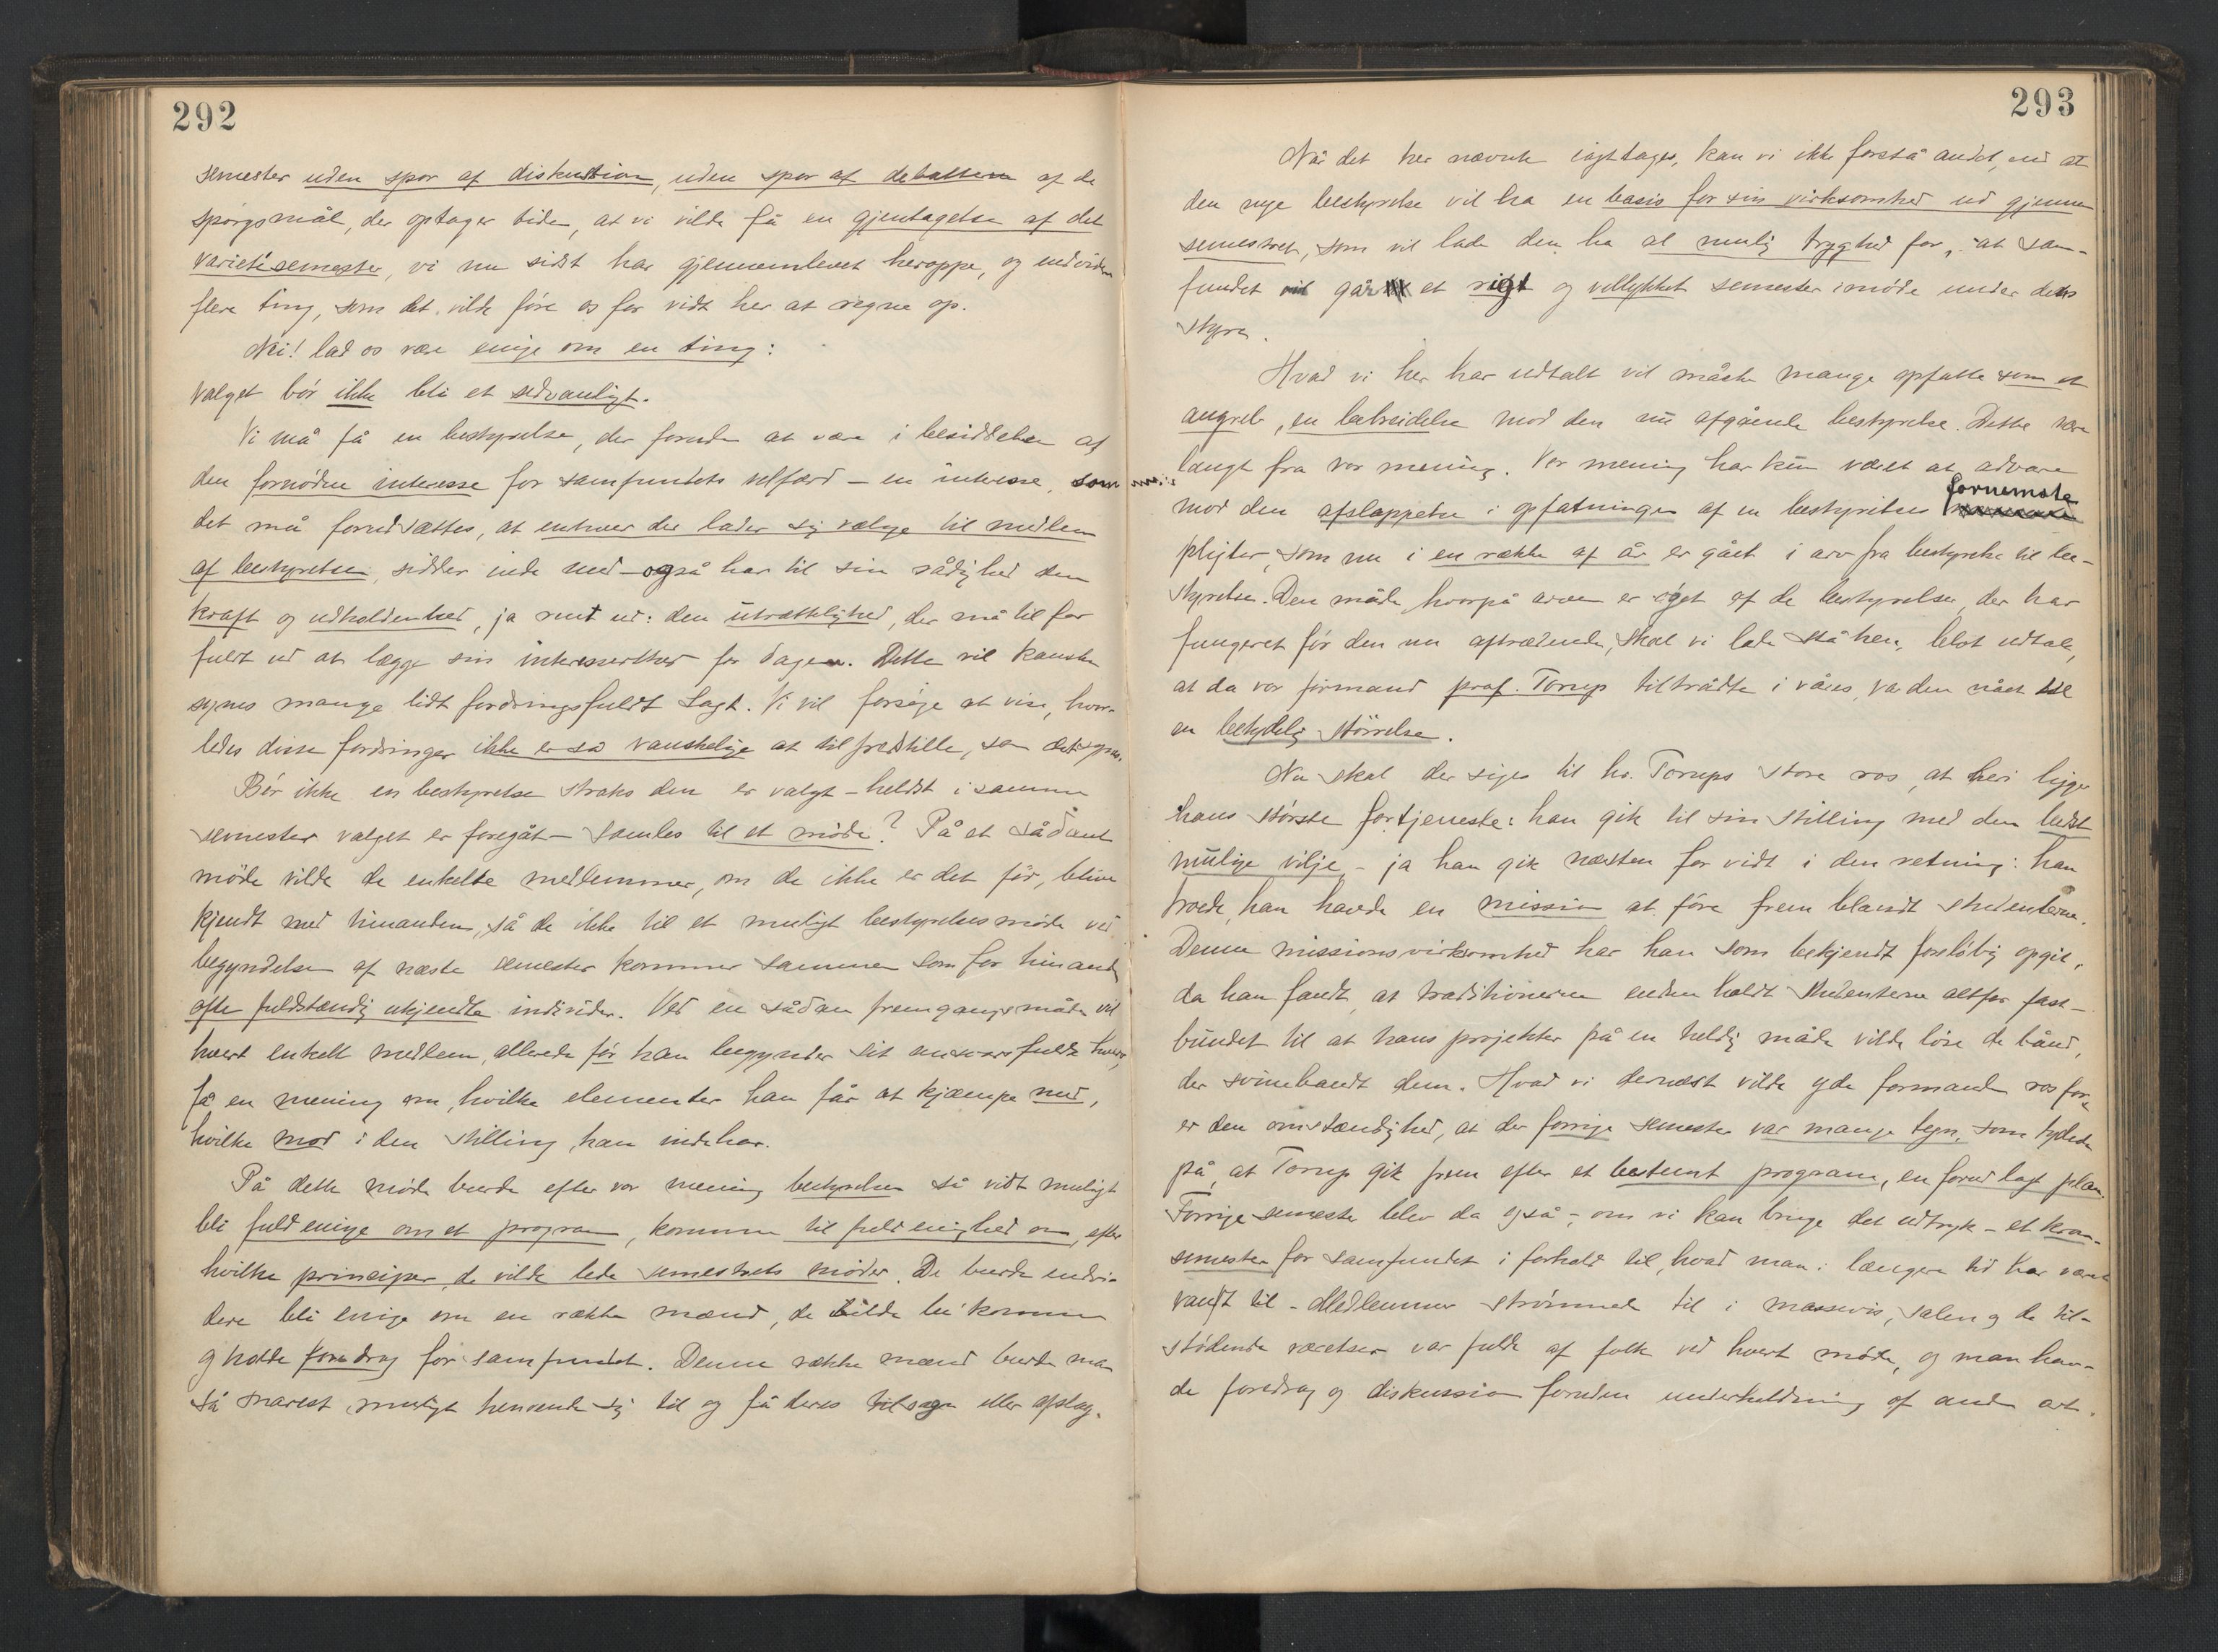 292
semester uden spor af diskussion, uden spor af debatten af de
spörgsmål, der optager tiden, at vi vilde få en gjentagelse af det
varietésemester, vi nu sidst har gjennemlevet heroppe, og endvidere
flere ting, som det vilde före os for vidt her at regne op.
Nei! lad os være enige om en ting:
Valget bör ikke bli et sedvanligt.
Vi må få en bestyrelse, der foruden at være i besiddelse af
den fornödne interesse for samfundets velfærd – en interesse, som
det må forudsættes, at enhver der lader sig vælge til medlem
af bestyrelsen, sidder inde med – også har til sin rådighed den
kraft og udholdenhed, ja rent ud: den utrættelighed, der må til for
fuldt ud at lægge sin interesserthed for dagen. Dette vil kanske
synes mange lidt fordringsfuldt sagt. Vi vil forsöge at vise, hvor-
ledes disse fordringer ikke er så vanskelige at tilfredstille, som det synes.
Bör ikke en bestyrelse straks den er valgt – heldst i samme
semester valget er foregåt – samles til et möde? På et sådant
möde vilde de enkelte medlemmer, om de ikke er det för, blive
kjendt med hinanden, så de ikke til et muligt bestyrelsesmöde ved
begyndelsen af næste semester kommer sammen som for hinanden
ofte fuldstændig ukjendte individer. Ved en sådan fremgangsmåde vil
hvert enkelt medlem, allerede för han begynder sit ansvarsfulde hverv,
få en mening om, hvilke elementer han får at kjæmpe med,
hvilke mod i den stilling, han indehar.
På dette möde burde efter vor mening bestyrelsen så vidt muligt
bli fuld enige om et program, komme til fuld enighed om, efter
hvilke principer de vilde lede semestrets möder. De burde endvi-
dere bli enige om en række mænd, de vilde be komme
og holde foredrag for samfundet. Denne række mænd burde man
så snarest muligt henvende sig til og få deres tilsagn eller afslag.
293
Når det her nævnte iagttages, kan vi ikke forstå andet, end at
den nye bestyrelse vil ha en basis for sin virksomhed ud gjennem
semestret, som vil lade den ha al mulig tryghed for, at sam-
fundet går et rigt og vellykket semester imöde under dets
styre.
Hvad vi her har udtalt vil måske mange opfatte som et
angreb, en bebreidelse mod den nu afgående bestyrelse. Dette være
langt fra vor mening. Vor mening har kun været at advare
mod den afslappelse i opfatningen af en bestyrelses fornemste
pligter, som nu i en række af år er gået i arv fra bestyrelse til be-
styrelse. Den måde, hvorpå arven er öget af de bestyrelser, der har
fungeret för den nu aftrædende, skal vi lade stå hen, blot udtale,
at da vor formand prof. Torup tiltrådte i våres, var den nået til
en betydelig störrelse.
Nu skal der siges til hr. Torups store ros, at heri ligger
hans störste fortjeneste: han gik til sin stilling med den bedst
mulige vilje – ja han gik næsten for vidt i den retning: han
troede, han havde en mission at före frem blandt studenterne.
Denne missionsvirksomhed har han som bekjendt forelöbig opgit,
da han fandt, at traditionerne endnu holdt studenterne altfor fast-
bundet til at hans projekter på en heldig måde vilde löse de bånd,
der svinebandt dem. Hvad vi dernæst vilde yde formanden ros for,
er den omstændighed, at der forrige semester var mange tegn, som tydede
på, at Torup gik frem efter et bestemt program, en forud lagt plan.
Forrige semester blev da også – om vi kan bruge det udtryk – et kron-
semester for samfundet i forhold til, hvad man i længere tid har været
vandt til. Medlemmer strömmede til i massevis, salen og de til-
stödende værelser var fulde af folk ved hvert möde, og man hav-
de foredrag og diskussion foruden underholdning af anden art.